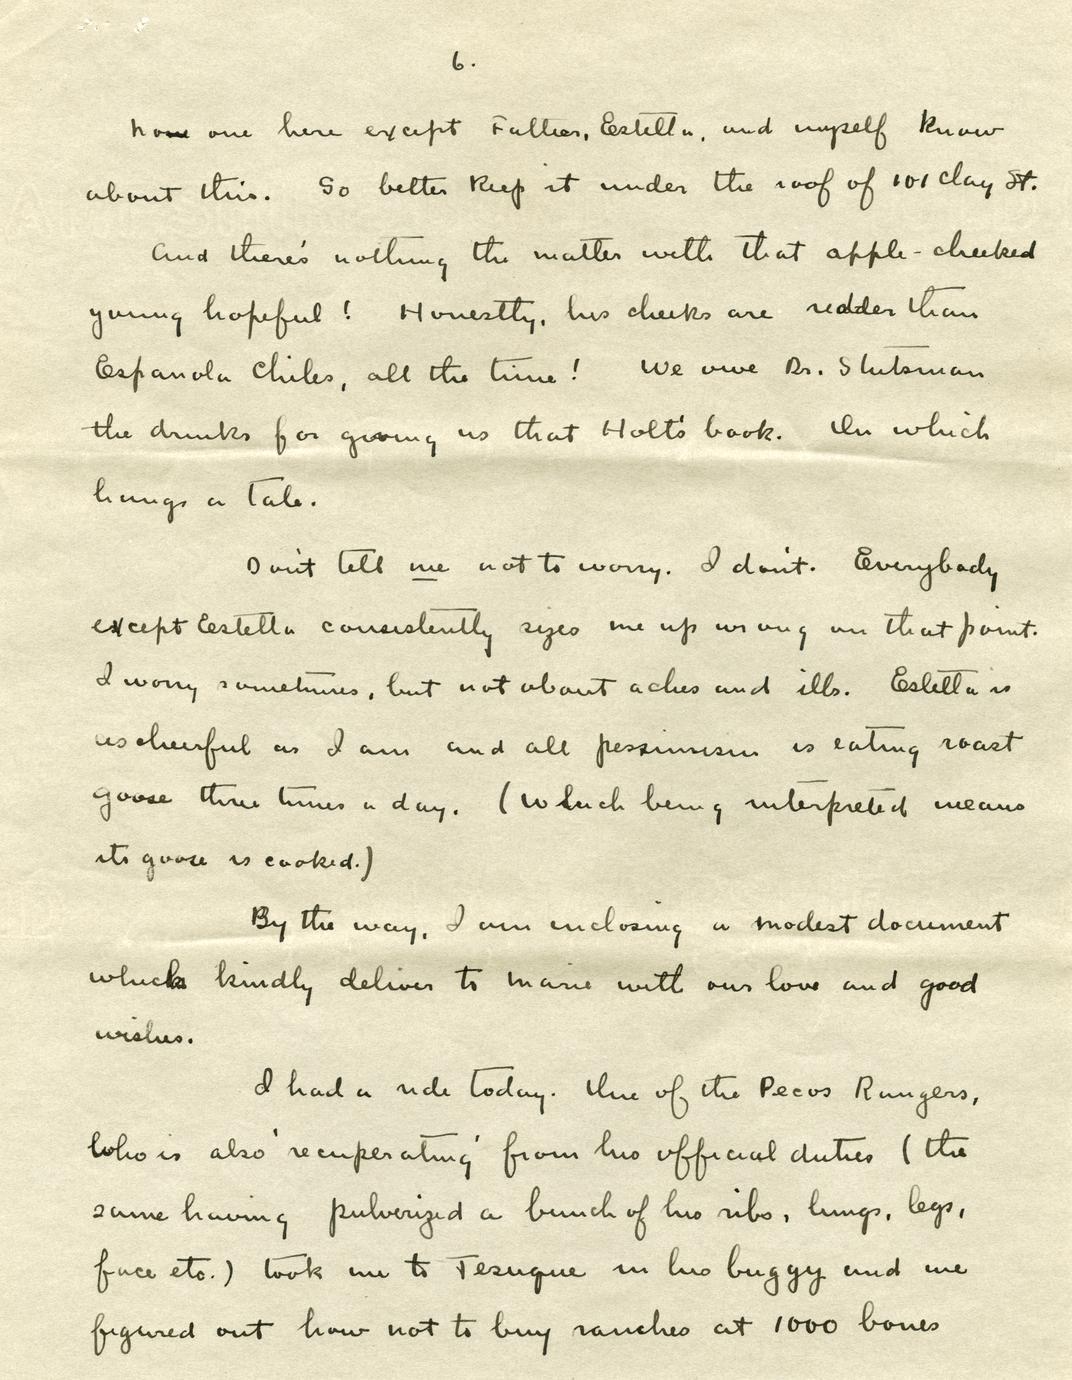 6.
None one here except Father, Estella, and myself know
about this. So better keep it under the roof of 101 Clay St.
And there's nothing the matter with that apple-cheeked
young hopeful! Honestly, his cheeks are redder than
Espanola Chiles, all the time! We owe Dr. Stutsman
the drinks for giving us that Holt's book. On which
hangs a tale.
Don't tell me not to worry. I don't. Everybody
except Estella consistently sizes me up wrong on that point.
I worry sometimes, but not about aches and ills. Estella is
as cheerful as I am and all pessimism is eating roast
goose three times a day. (Which being interpreted means
its goose is cooked.)
By the way, I am inclosing a modest document
which kindly deliver to Marie with our love and good
wishes.
I had a ride today. One of the Pecos Rangers,
who is also 'recuperating' from his official duties (the
same having pulverized a bunch of his ribs, lungs, legs,
face etc.) took me to Tesuque in his buggy and we
figured out how not to buy ranches at 1000 bones